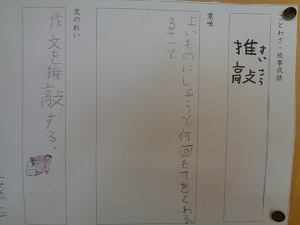 ことわざ・故事成語
推敲
すいこう
意味
よいものにしようと何回もてをくわえ
ること
文のれい
作文を推敲する。